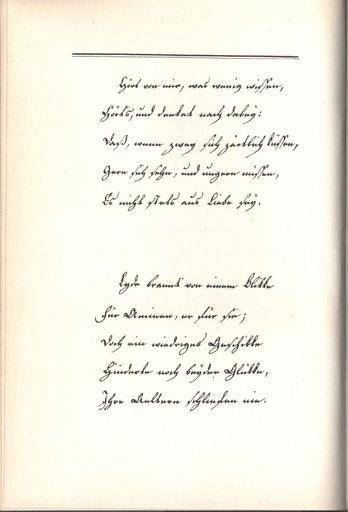 Hört von mir, was wenig wissen,
Hörts, und denket nach dabey:
Daß, wenn zwey sich zärtlich küssen,
Gern sich sehn, und ungern missen,
Es nicht stets aus Liebe sey.
Lyde brannt von einem Blikke
Für Aminen, er für sie;
Doch ein widriges Geschikke
Hinderte noch beyder Glükke,
Ihre Aeltern schliefen nie.